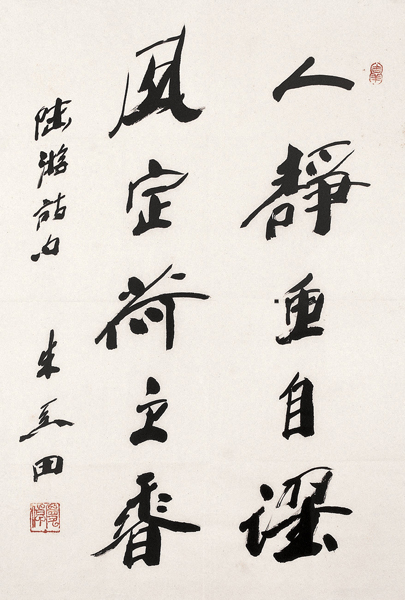 人靜魚自躍
風定荷更香
陸游詩句 朱关田